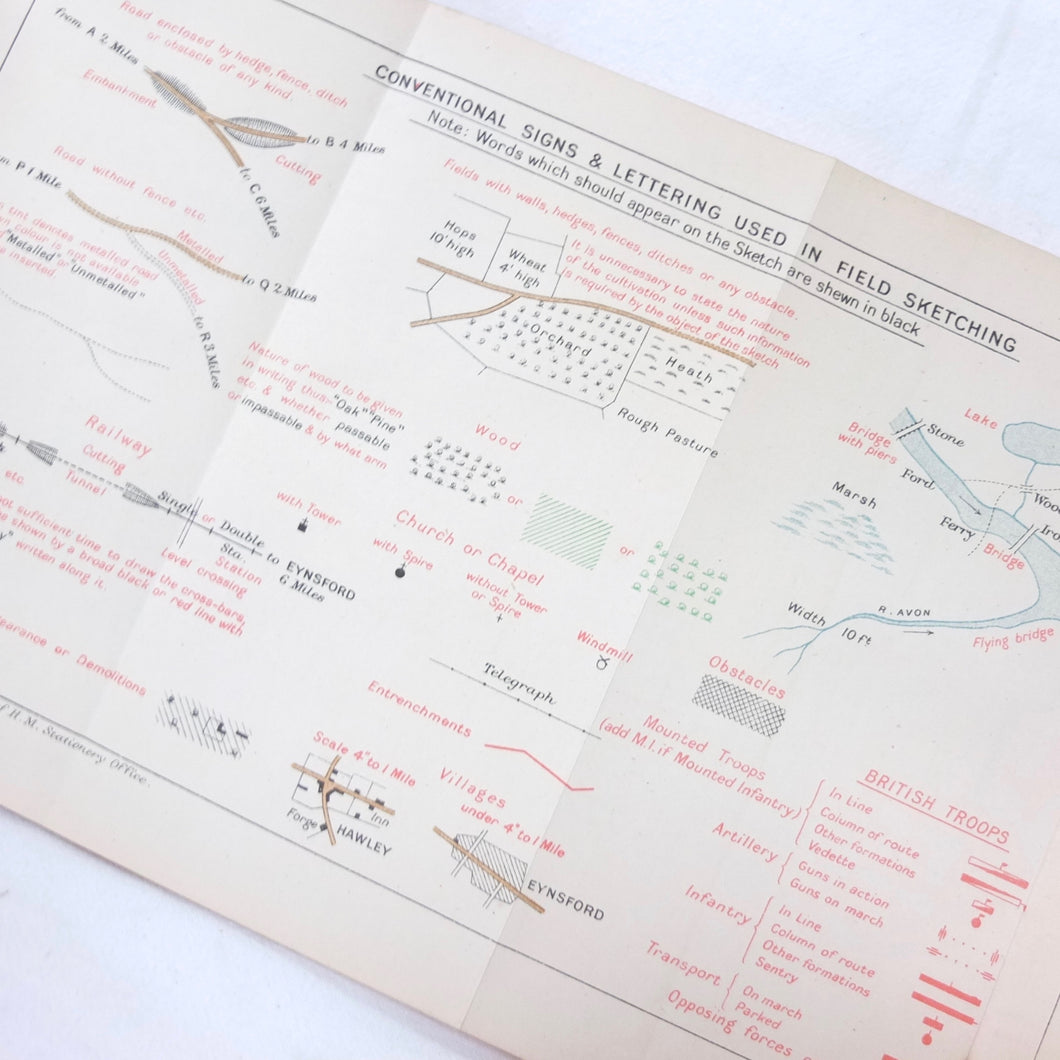 CONVENTIONAL SIGNS & LETTERING USED IN FIELD SKETCHING
Note: Words which should appear on the Sketch are shewn in black
Road enclosed by hedge, fence, ditch
or obstacle of any kind.
from A 2 Miles
Embankment
to B 4 Miles
Cutting
to C 6 Miles
Road without fence etc.
P 1 Mile
Metalled
Unmetalled
to Q 2 Miles
to R 3 Miles
tint denotes metalled road
colour is not available
"Metalled" or "Unmetalled"
inserted
Fields with walls, hedges, fences, ditches or any obstacle.
It is unnecessary to state the nature
of the cultivation unless such information
is required by the object of the sketch
Hops
10' high
Wheat
4' high
Orchard
Heath
Rough Pasture
Nature of wood to be given
in writing thus- "Oak" "Pine"
etc. & whether passable
or impassable & by what arm
Wood
or
or
Railway
Cutting
Tunnel
etc.
Single or Double
Sta.
to EYNSFORD
6 Miles
Station
Level crossing
not sufficient time to draw the cross-bars,
be shown by a broad black or red line with
written along it.
with Tower
Church or Chapel
with Spire
without Tower
or Spire
Windmill
Telegraph
Entrenchments
Obstacles
Clearance or Demolitions
Scale 4" to 1 Mile
Villages
under 4" to 1 Mile
Forge
Inn
HAWLEY
EYNSFORD
Lake
Bridge
with piers
Stone
Ford
Marsh
Ferry
Bridge
Width 10 ft
R. AVON
Flying bridge
BRITISH TROOPS
Mounted Troops
(add M.I. if Mounted Infantry)
In Line
Column of route
Other formations
Vedette
Artillery
Guns in action
Guns on march
Infantry
In Line
Column of route
Other formations
Sentry
Transport
On march
Parked
Opposing forces
of H. M. Stationery Office.